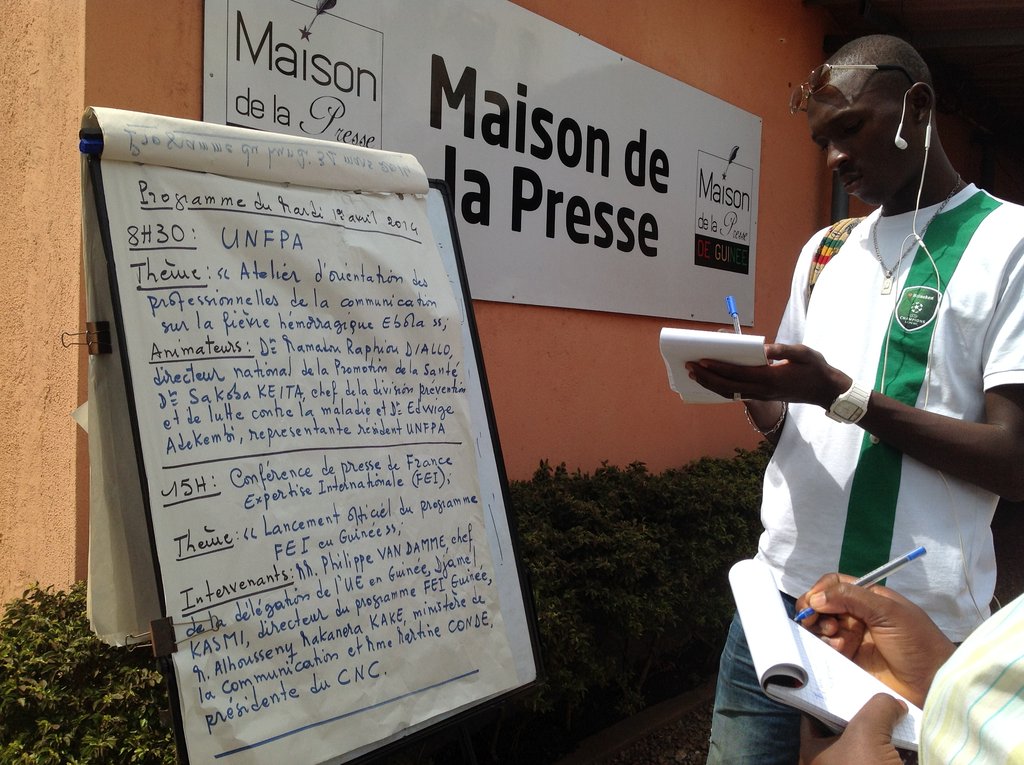 Maison
de la Presse
Maison de
la Presse
Maison
de la Presse
DE GUINÉE
Programme du Mardi 1er avril 2014
8H30: UNFPA
Thème: « Atelier d'orientation des
professionnelles de la communication
sur la fièvre hémorragique Ebola »;
Animateurs: Dr Mamadou Raphiou DIALLO,
directeur national de la Promotion de la Santé
Dr Sakoba KEITA, chef de la division prévention
et de lutte contre la maladie et Dr Edwige
Adekambi, représentante résident UNFPA
15H: Conférence de presse de France
Expertise Internationale (FEI);
Thème: « Lancement officiel du programme
FEI en Guinée »;
Intervenants: M. Philippe VAN DAMME chef
de la délégation de l'UE en Guinée, Djamel
KASMI, directeur du programme FEI Guinée,
M. Alhousseny Makanera KAKE, ministère de
la communication et Mme Martine CONDE,
présidente du CNC.
Heineken
CHAMPIONS